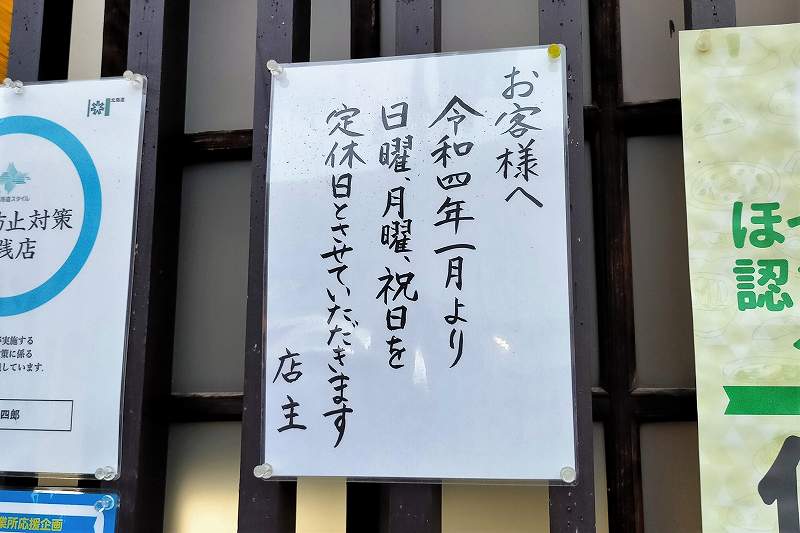 お客様へ
令和四年一月より
日曜、月曜、祝日を
定休日とさせていただきます
店主
北海道
道スタイル
防止対策
践店
実施する
策に係る
しています。
四郎
業所応援企画
ほ
認